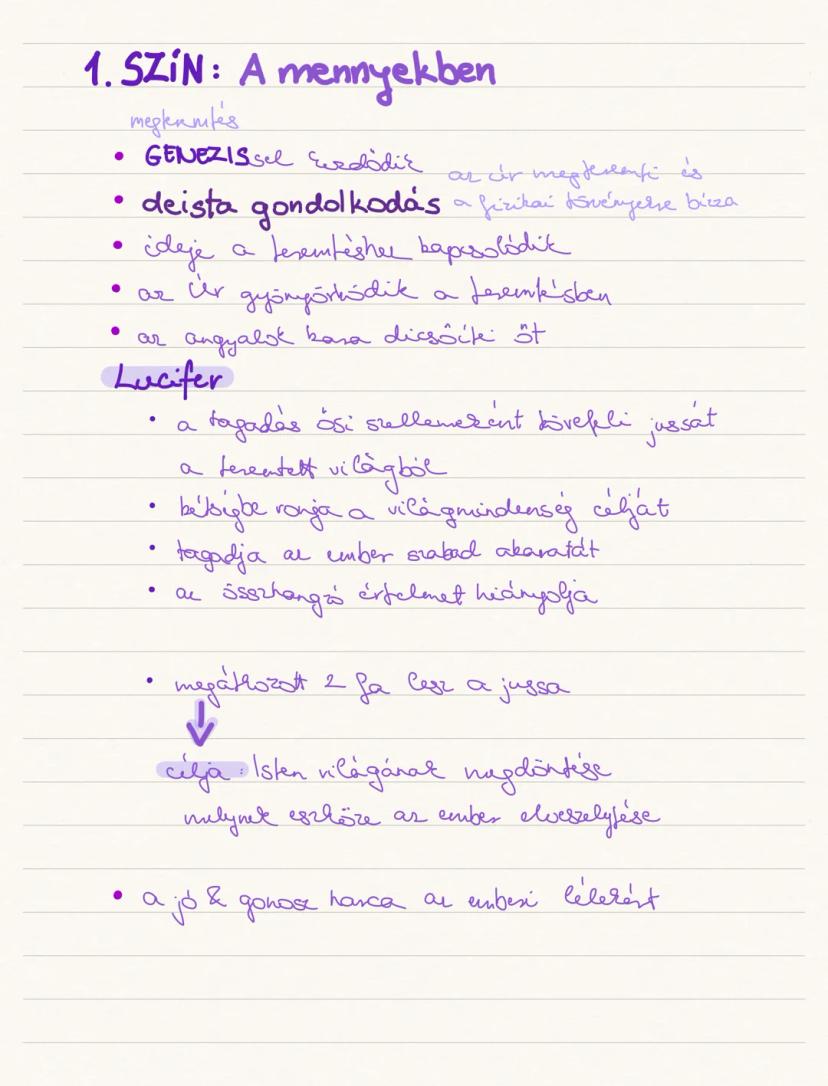 1. SZÍN: A mennyekben
megteremtés
• GENEZISsel kezdődik
az úr megteremti és
• deista gondolkodás a fizikai törvényekre bízza
• ideje a teremtéshez kapcsolódik
• az Úr gyönyörködik a teremtésben
• az angyalok kara dicsőíti őt
Lucifer
• a tagadás ősi szellemeként követeli jussát
a teremtett világból
• kétségbe vonja a világmindenség célját
• tagadja az ember szabad akaratát
• az összhangzó értelmet hiányolja
• megátkozott 2 fa lesz a jussa
célja: Isten világának megdöntése
melynek eszköze az ember elveszejtése
• a jó & gonosz harca az emberi lélekért